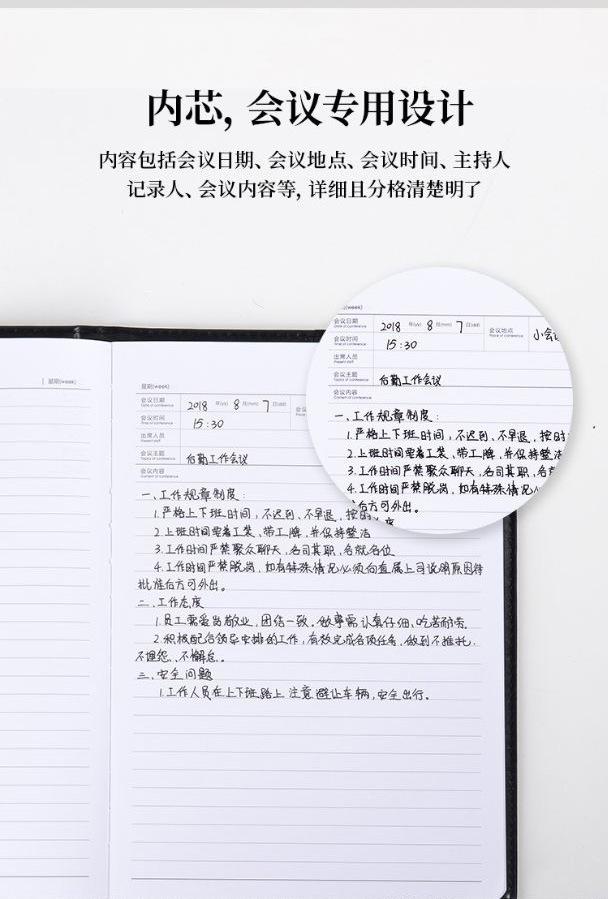 内芯，会议专用设计
内容包括会议日期、会议地点、会议时间、主持人
记录人、会议内容等，详细且分格清楚明了
(week)
会议日期 2018 年(y) 8 月(mm) 7 日(dd) 会议地点 小会
Date of conference
会议时间 15:30
Time of conference
出席人员
Present staff
会议主题 后勤工作会议
Topics of conference
会议内容
Content of conference
一、工作规章制度：
1.严格上下班时间，不迟到、不早退，按时
2.上班时间需着工装、带工牌，并保持整洁
3.工作时间严禁聚众聊天，各司其职、各
4.工作时间严禁脱岗，如有特殊情况必
后方可外出。
星期(week)
星期(week)
会议日期 2018 年(y) 8 月(mm) 7 日(dd) 会
Date of conference
会议时间 15:30
Time of conference
出席人员
Present staff
会议主题 后勤工作会议
Topics of conference
会议内容
Content of conference
一、工作规章制度：
1.严格上下班时间，不迟到、不早退，按时
2.上班时间需着工装、带工牌，并保持整洁
3.工作时间严禁聚众聊天，各司其职、各就各位
4.工作时间严禁脱岗，如有特殊情况必须向直属上司说明原因待
批准后方可外出。
二、工作态度
1.员工需爱岗敬业，团结一致。做事需认真仔细、吃苦耐劳。
2.积极配合领导安排的工作，有效完成各项任务，做到不推托、
不埋怨、不懈怠。
三、安全问题
1.工作人员在上下班路上注意避让车辆，安全出行。